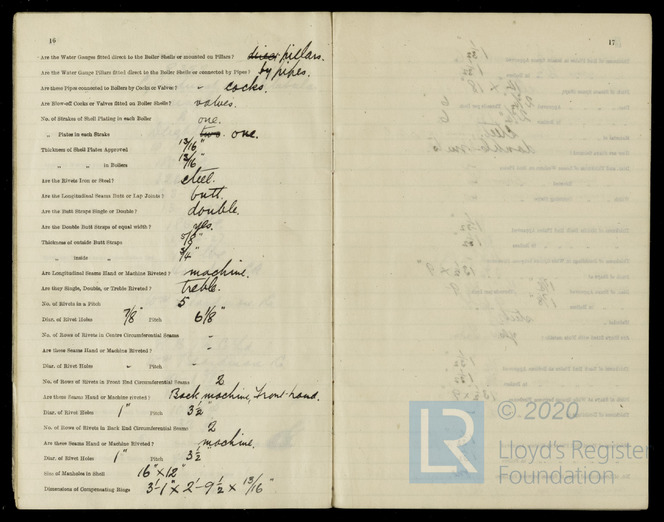 16
Are the Water Gauges fitted direct to the Boiler Shells or mounted on Pillars? direct pillars.
Are the Water Gauge Pillars fitted direct to the Boiler Shells or connected by Pipes? by pipes.
Are these Pipes connected to Boilers by Cocks or Valves? " cocks.
Are Blow-off Cocks or Valves fitted on Boiler Shells? valves.
No. of Strakes of Shell Plating in each Boiler one.
" Plates in each Strake two. one.
Thickness of Shell Plates Approved 13/16"
" " " in Boilers 13/16"
Are the Rivets Iron or Steel? steel.
Are the Longitudinal Seams Butt or Lap Joints? butt.
Are the Butt Straps Single or Double? double.
Are the Double Butt Straps of equal width? yes.
Thickness of outside Butt Straps 5/8"
" inside " 3/4"
Are Longitudinal Seams Hand or Machine Riveted? machine.
Are they Single, Double, or Treble Riveted? treble.
No. of Rivets in a Pitch 5
Diar. of Rivet Holes 7/8" Pitch 6 1/8"
No. of Rows of Rivets in Centre Circumferential Seams "
Are these Seams Hand or Machine Riveted? "
Diar. of Rivet Holes " Pitch "
No. of Rows of Rivets in Front End Circumferential Seams 2
Are these Seams Hand or Machine riveted? Back machine, Front hand.
Diar. of Rivet Holes 1" Pitch 3 1/2"
No. of Rows of Rivets in Back End Circumferential Seams 2
Are these Seams Hand or Machine Riveted? machine.
Diar. of Rivet Holes 1" Pitch 3 1/2"
Size of Manholes in Shell 16" x 12"
Dimensions of Compensating Rings 3'-1" x 2'-9 1/2 x 13/16"
17
© 2020
LR
Lloyd's Register
Foundation